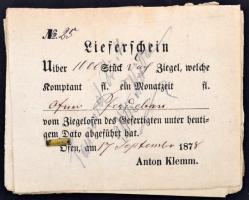 No. 25
Lieferschein
Uiber 1000 Stück Ziegel, welche
Komptant fl. ein Monatzeit fl.
Ofner
vom Ziegelofen des Gefertigten unter heuti-
gem Dato abgeführt hat.
Ofen, am 17 September 1878
Anton Klemm.